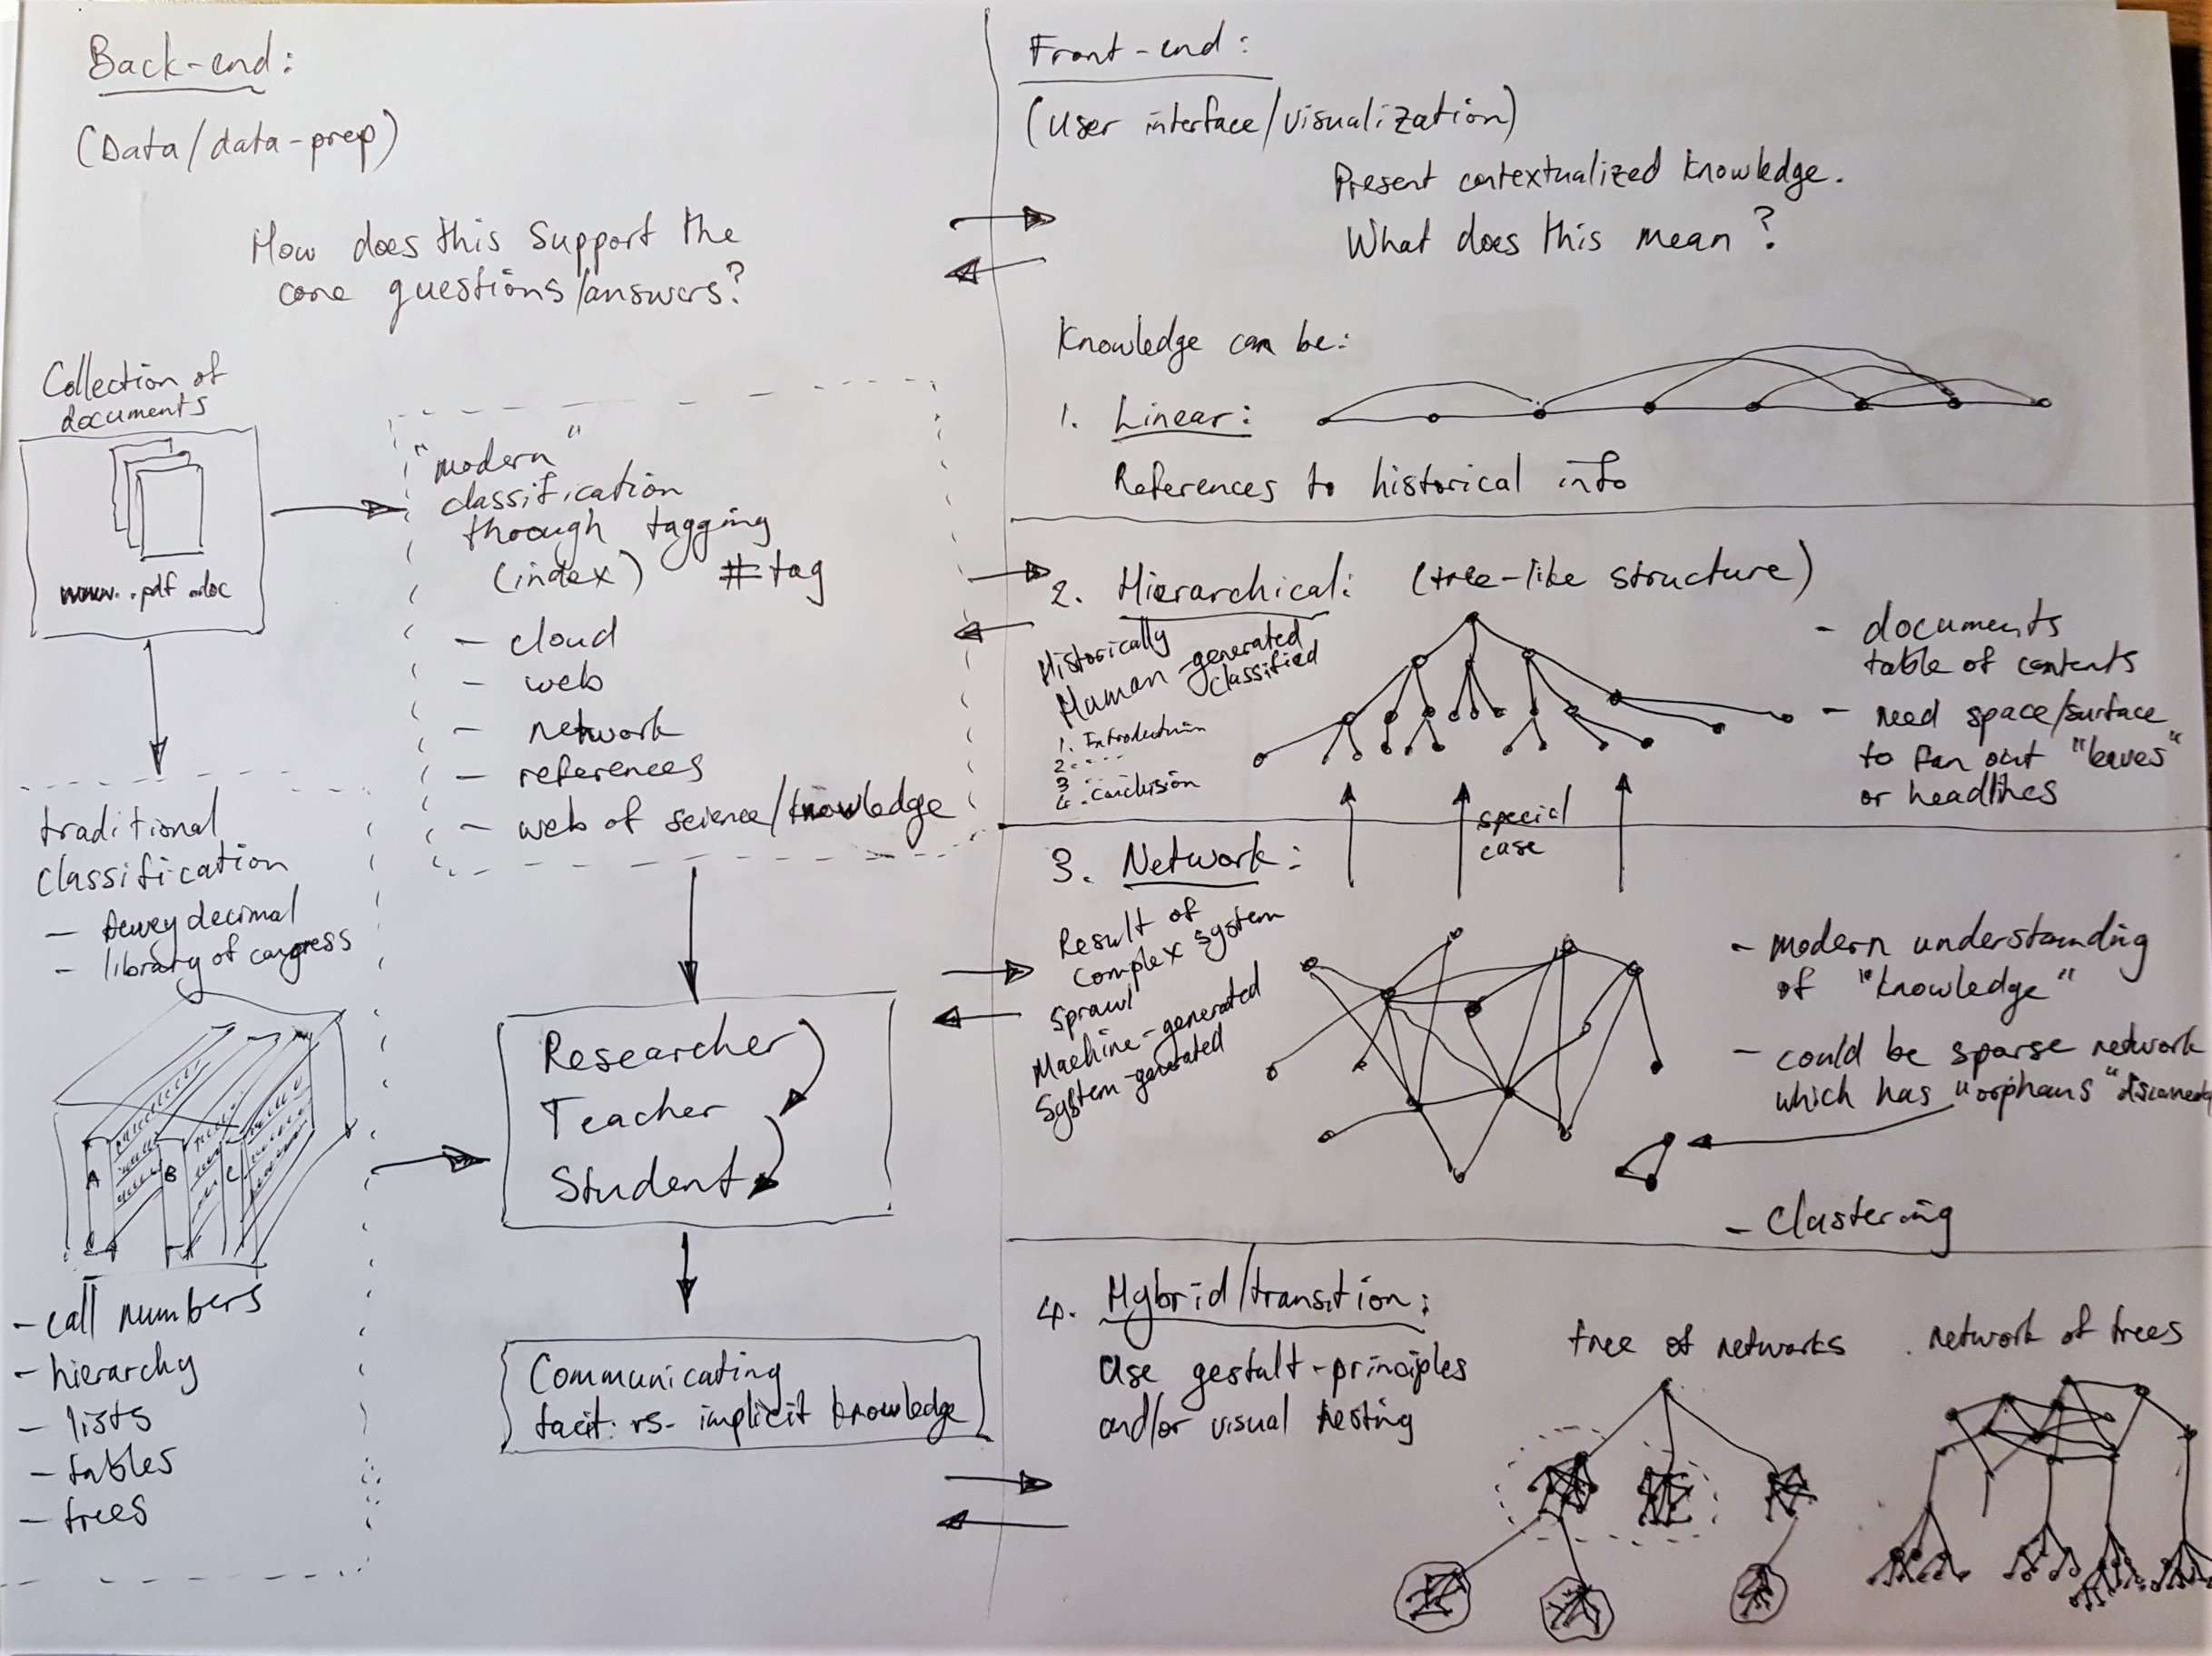 Back-end:
(Data/data-prep)
How does this support the
core questions/answers?
Collection of
documents
www. .pdf .doc
"modern"
classification
through tagging
(index) #tag
- cloud
- web
- network
- references
- web of science/knowledge
traditional
classification
- Dewey decimal
- library of congress
A B C
- call numbers
- hierarchy
- lists
- tables
- trees
Researcher
Teacher
Student
Communicating
tacit vs. implicit knowledge
Front-end:
(User interface/visualization)
Present contextualized knowledge.
What does this mean?
Knowledge can be:
1. Linear:
References to historical info
2. Hierarchical: (tree-like structure)
Historically
Human-generated
classified
1. Introduction
2. ...
3 ...
4. Conclusion
- documents
table of contents
- need space/surface
to fan out "leaves"
or headlines
special
case
3. Network:
Result of
complex system
Sprawl
Machine-generated
System-generated
- modern understanding
of "knowledge"
- could be sparse network
which has "orphans"
- Clustering
4. Hybrid/transition:
Use gestalt-principles
and/or visual nesting
tree of networks
network of trees